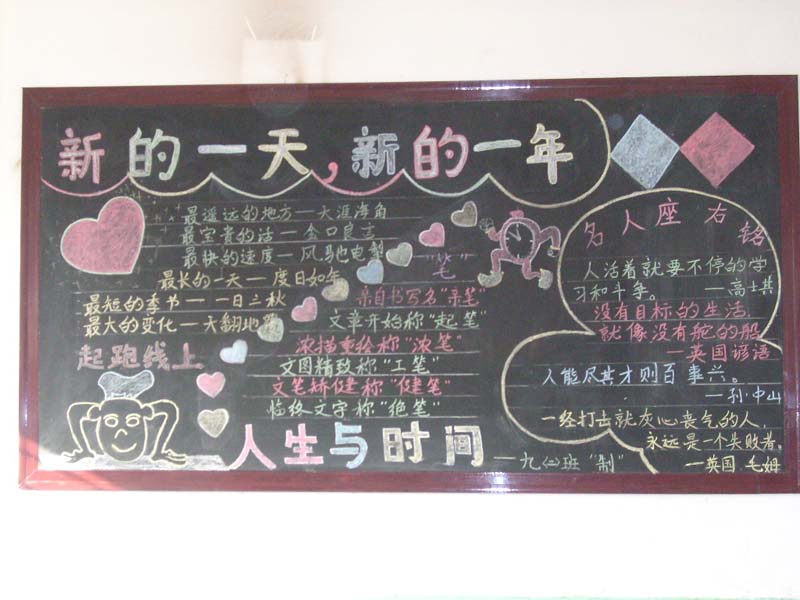 新的一天,新的一年
最遥远的地方—天涯海角
最宝贵的话—金口良言
最快的速度—风驰电掣
最长的一天—度日如年
最短的季节—一日三秋
最大的变化—天翻地覆
起跑线上
"笔"
亲自书写名"亲笔"
文章开始称"起笔"
浓描重绘称"浓笔"
文图精致称"工笔"
文笔矫健称"健笔"
临终文字称"绝笔"
人生与时间
—九(二)班"制"
名人座右铭
人活着就要不停的学
习和斗争。 —高士其
没有目标的生活,
就像没有舵的船
—英国谚语
人能尽其才则百事兴。
—孙·中山
一经打击就灰心丧气的人,
永远是一个失败者。
—英国 毛姆